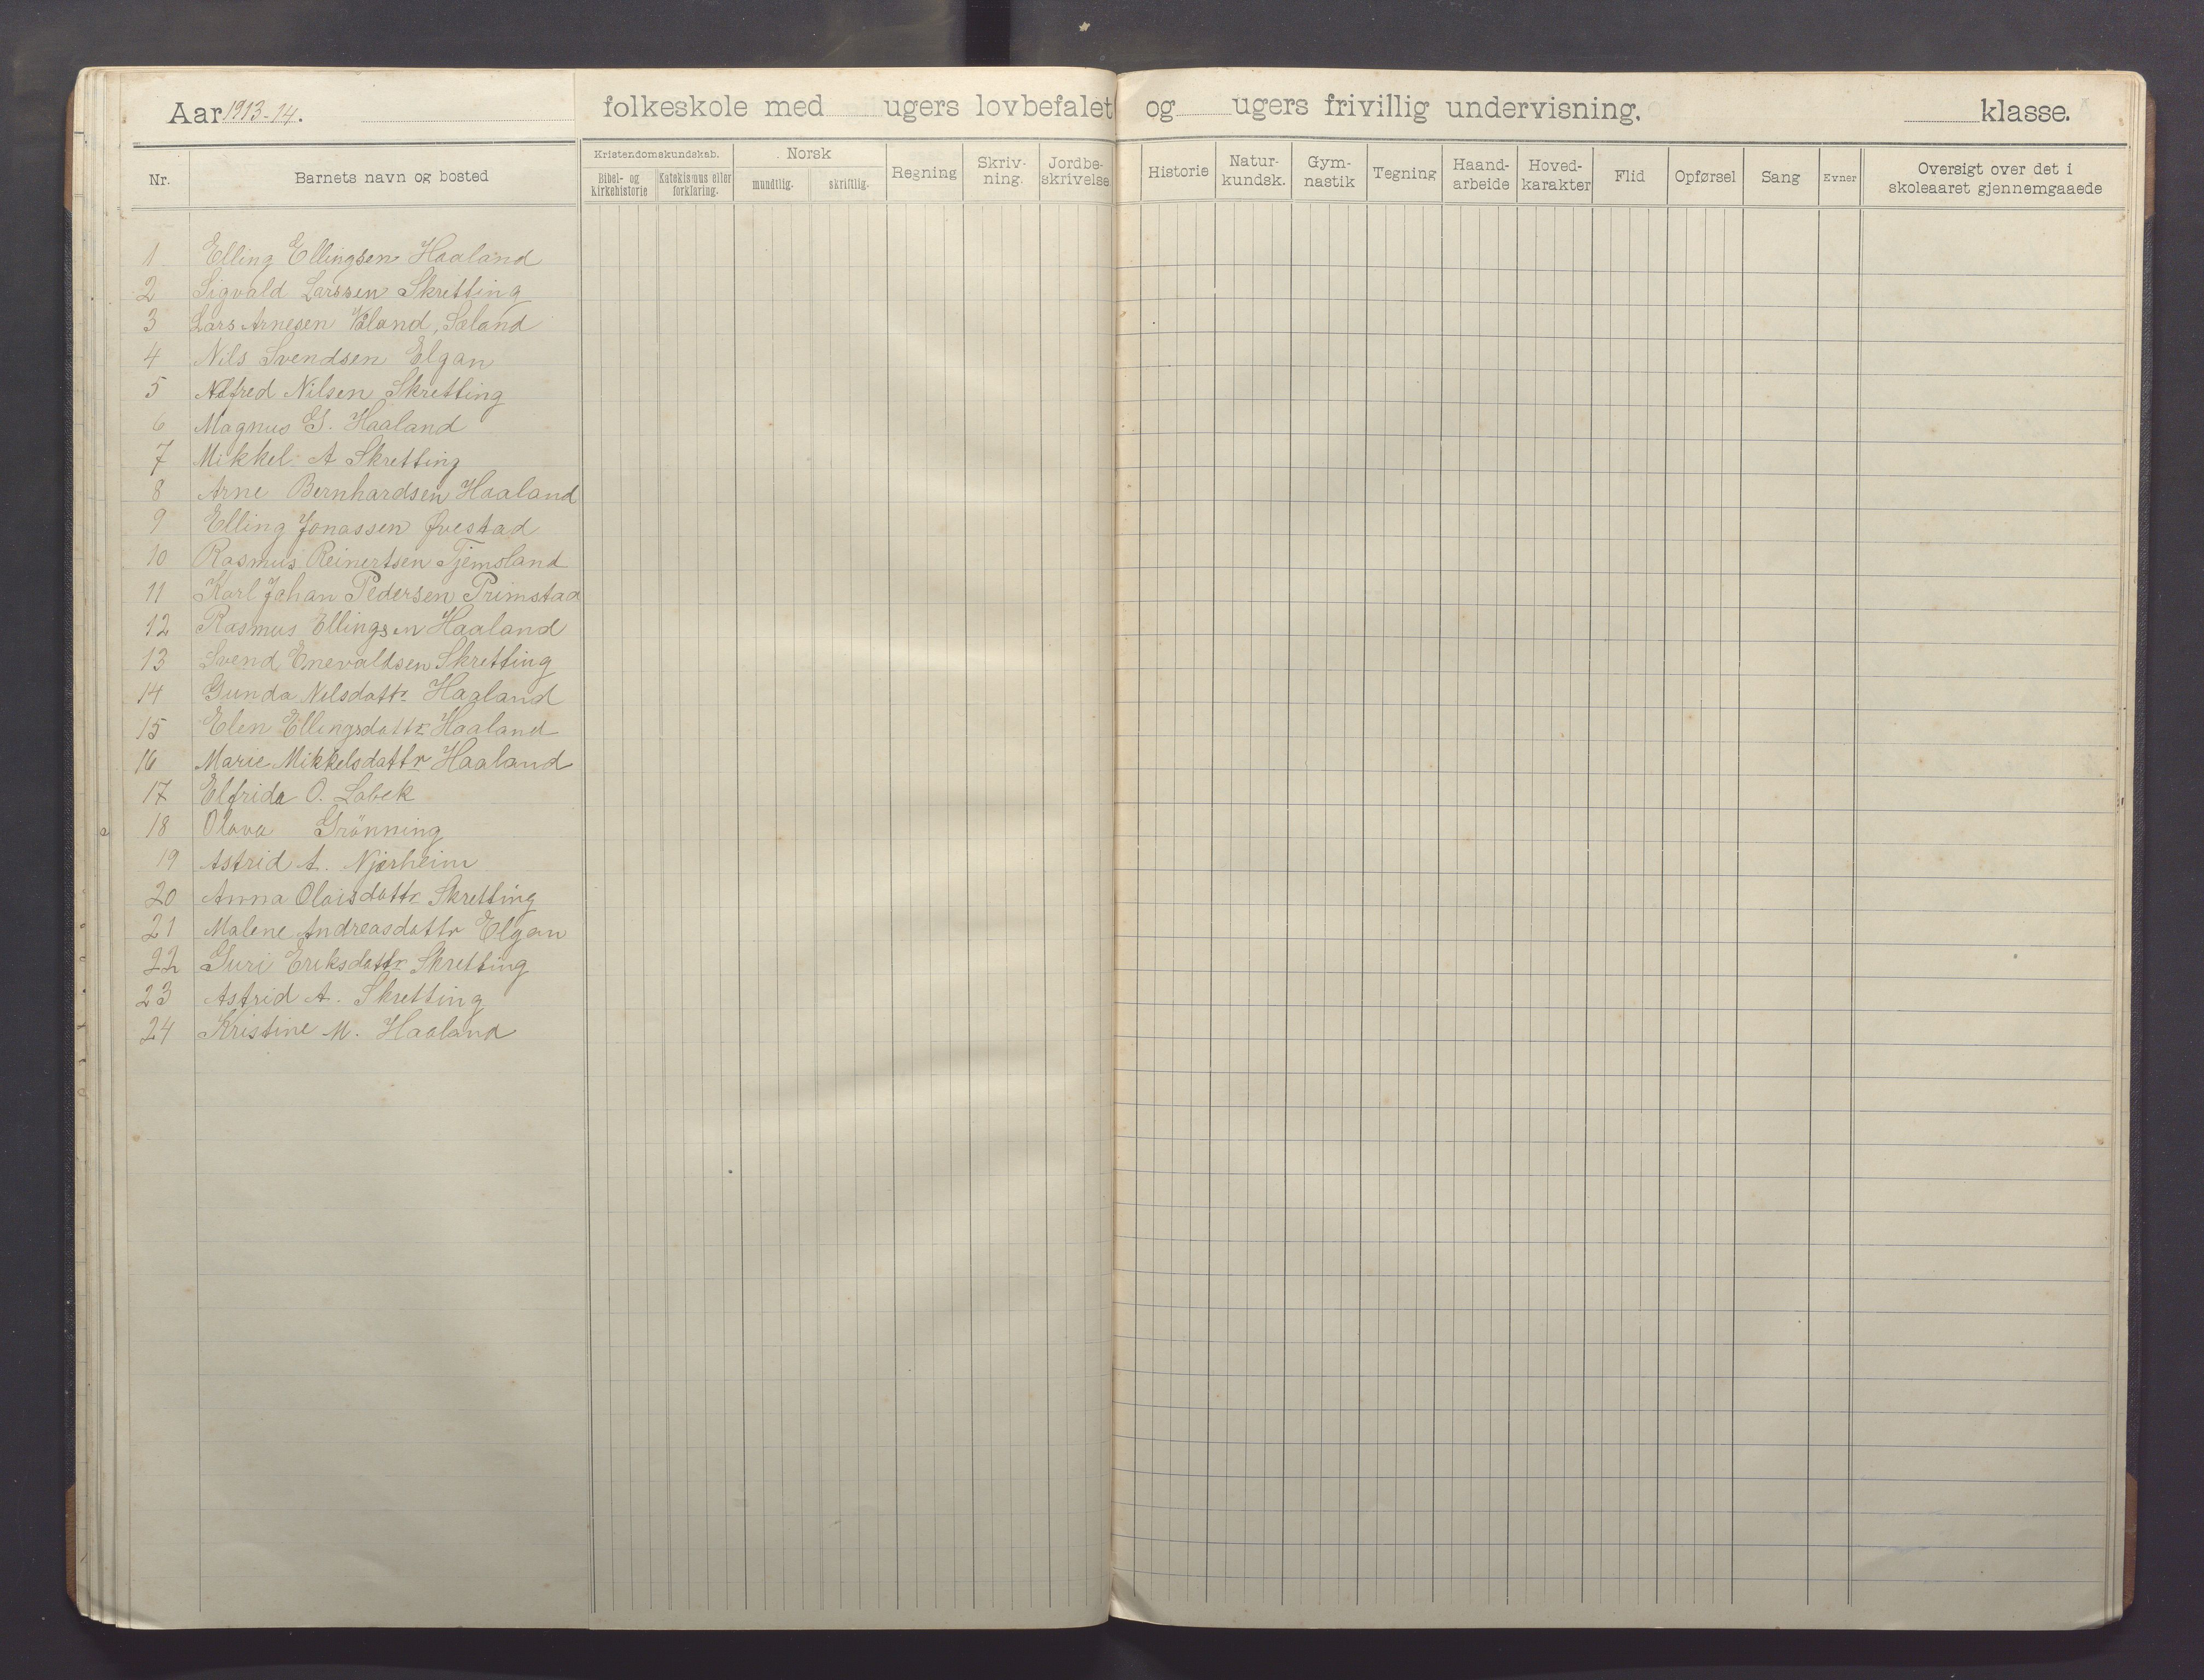 Aar 1913-14. folkeskole med ugers lovbefalet og ugers frivillig undervisning. klasse.
Nr. Barnets navn og bosted
Kristendomskundskab. Bibel- og kirkehistorie Katekismus eller forklaring.
Norsk mundtlig. skriftlig.
Regning Skriv-ning. Jordbe-skrivelse Historie Natur-kundsk. Gym-nastik Tegning Haand-arbeide Hoved-karakter Flid Opførsel Sang Evner
Oversigt over det i skoleaaret gjennemgaaede
1 Elling Ellingsen Haaland
2 Sigvald Larssen Skretting
3 Lars Arnesen Valand, Sæland
4 Nils Svendsen Elgan
5 Alfred Nilsen Skretting
6 Magnus G. Haaland
7 Mikkel A Skretting
8 Arne Bernhardsen Haaland
9 Elling Jonassen Øvestad
10 Rasmus Reinertsen Tjemsland
11 Karl Johan Pedersen Primstad
12 Rasmus Ellingsen Haaland
13 Svend Enevaldsen Skretting
14 Gunda Nilsdattr Haaland
15 Elen Ellingsdattr Haaland
16 Marie Mikkelsdattr Haaland
17 Elfrida O. Labek
18 Olava Grönning
19 Astrid A. Njærheim
20 Anna Olaisdattr Skretting
21 Malene Andreasdattr Elgan
22 Guri Eriksdattr Skretting
23 Astrid A. Skretting
24 Kristine M. Haaland